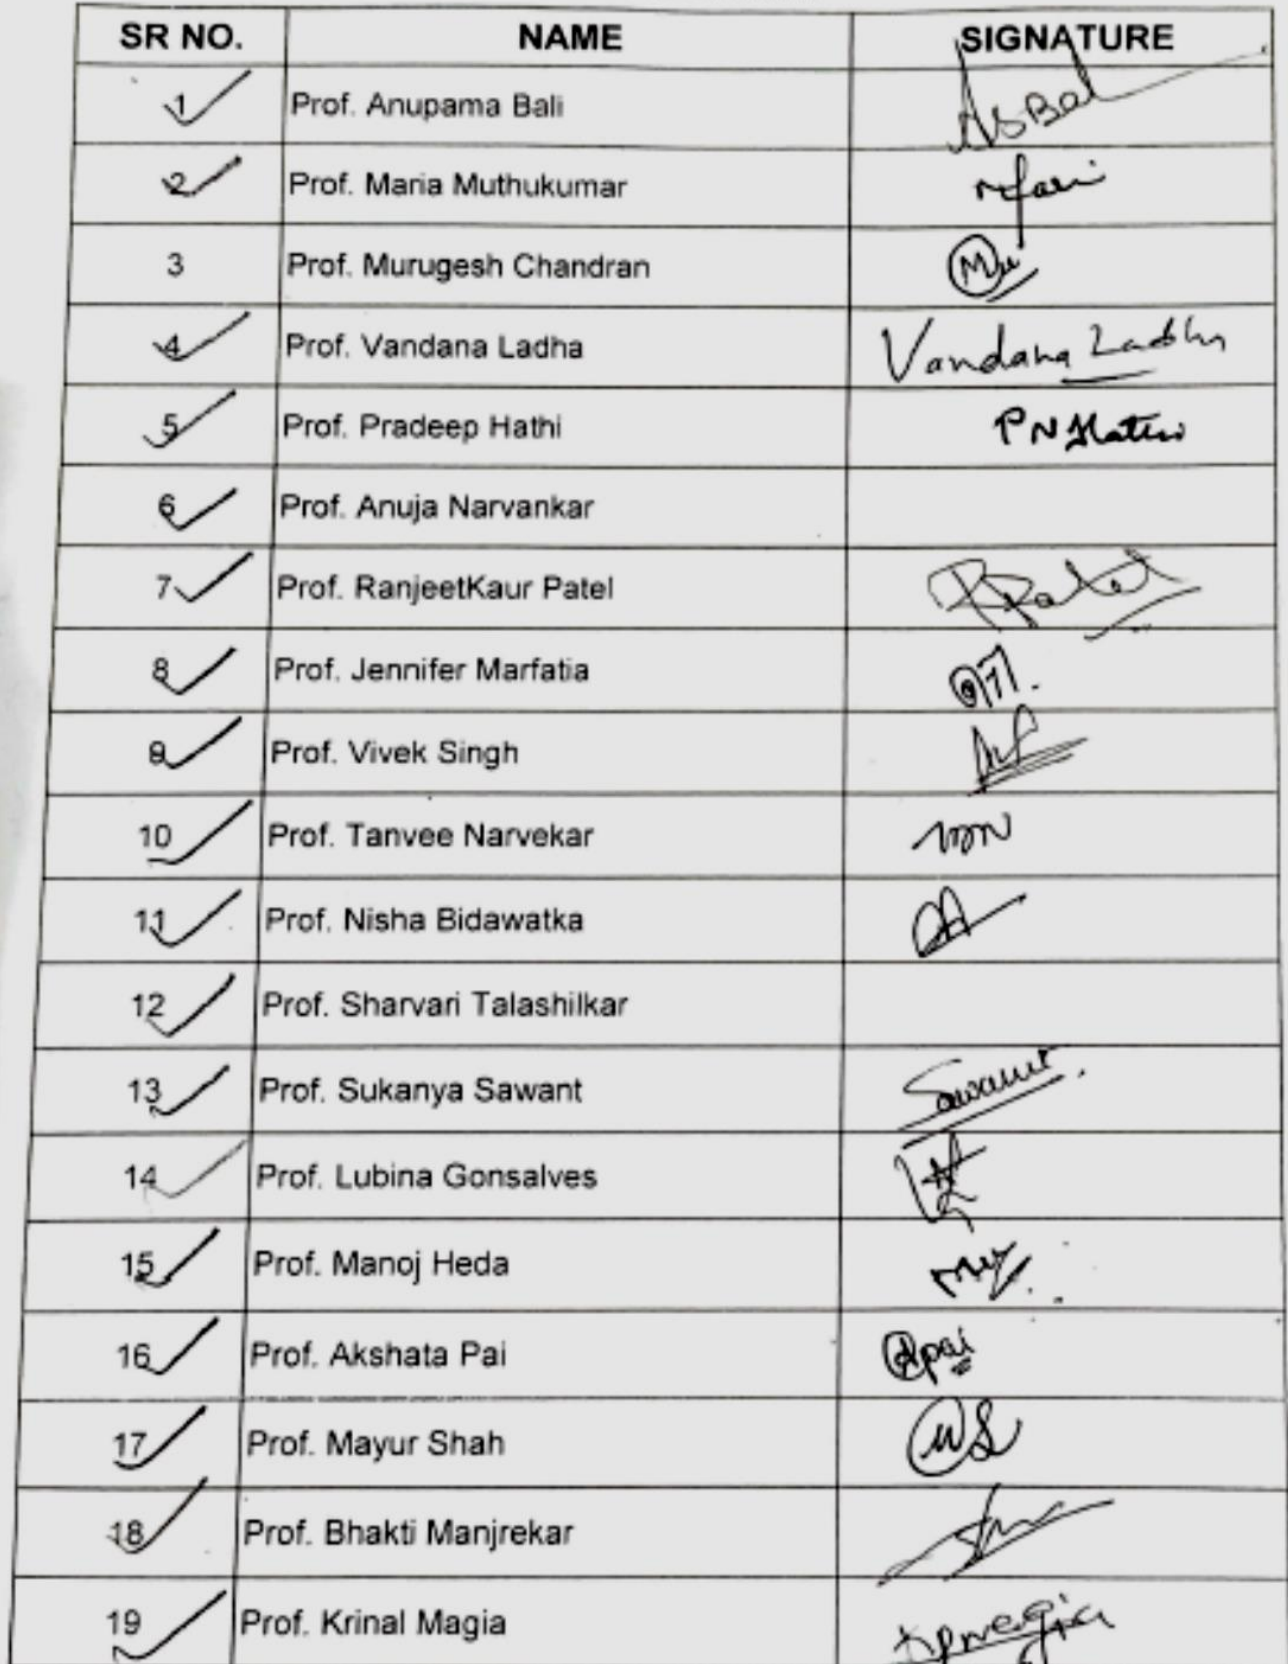 SR NO. NAME SIGNATURE
1 Prof. Anupama Bali ASBali
2 Prof. Maria Muthukumar
3 Prof. Murugesh Chandran Mu
4 Prof. Vandana Ladha Vandana Ladha
5 Prof. Pradeep Hathi PN Hathi
6 Prof. Anuja Narvankar
7 Prof. RanjeetKaur Patel RPatel
8 Prof. Jennifer Marfatia
9 Prof. Vivek Singh
10 Prof. Tanvee Narvekar
11 Prof. Nisha Bidawatka
12 Prof. Sharvari Talashilkar
13 Prof. Sukanya Sawant Sawant
14 Prof. Lubina Gonsalves
15 Prof. Manoj Heda
16 Prof. Akshata Pai Apai
17 Prof. Mayur Shah MS
18 Prof. Bhakti Manjrekar
19 Prof. Krinal Magia